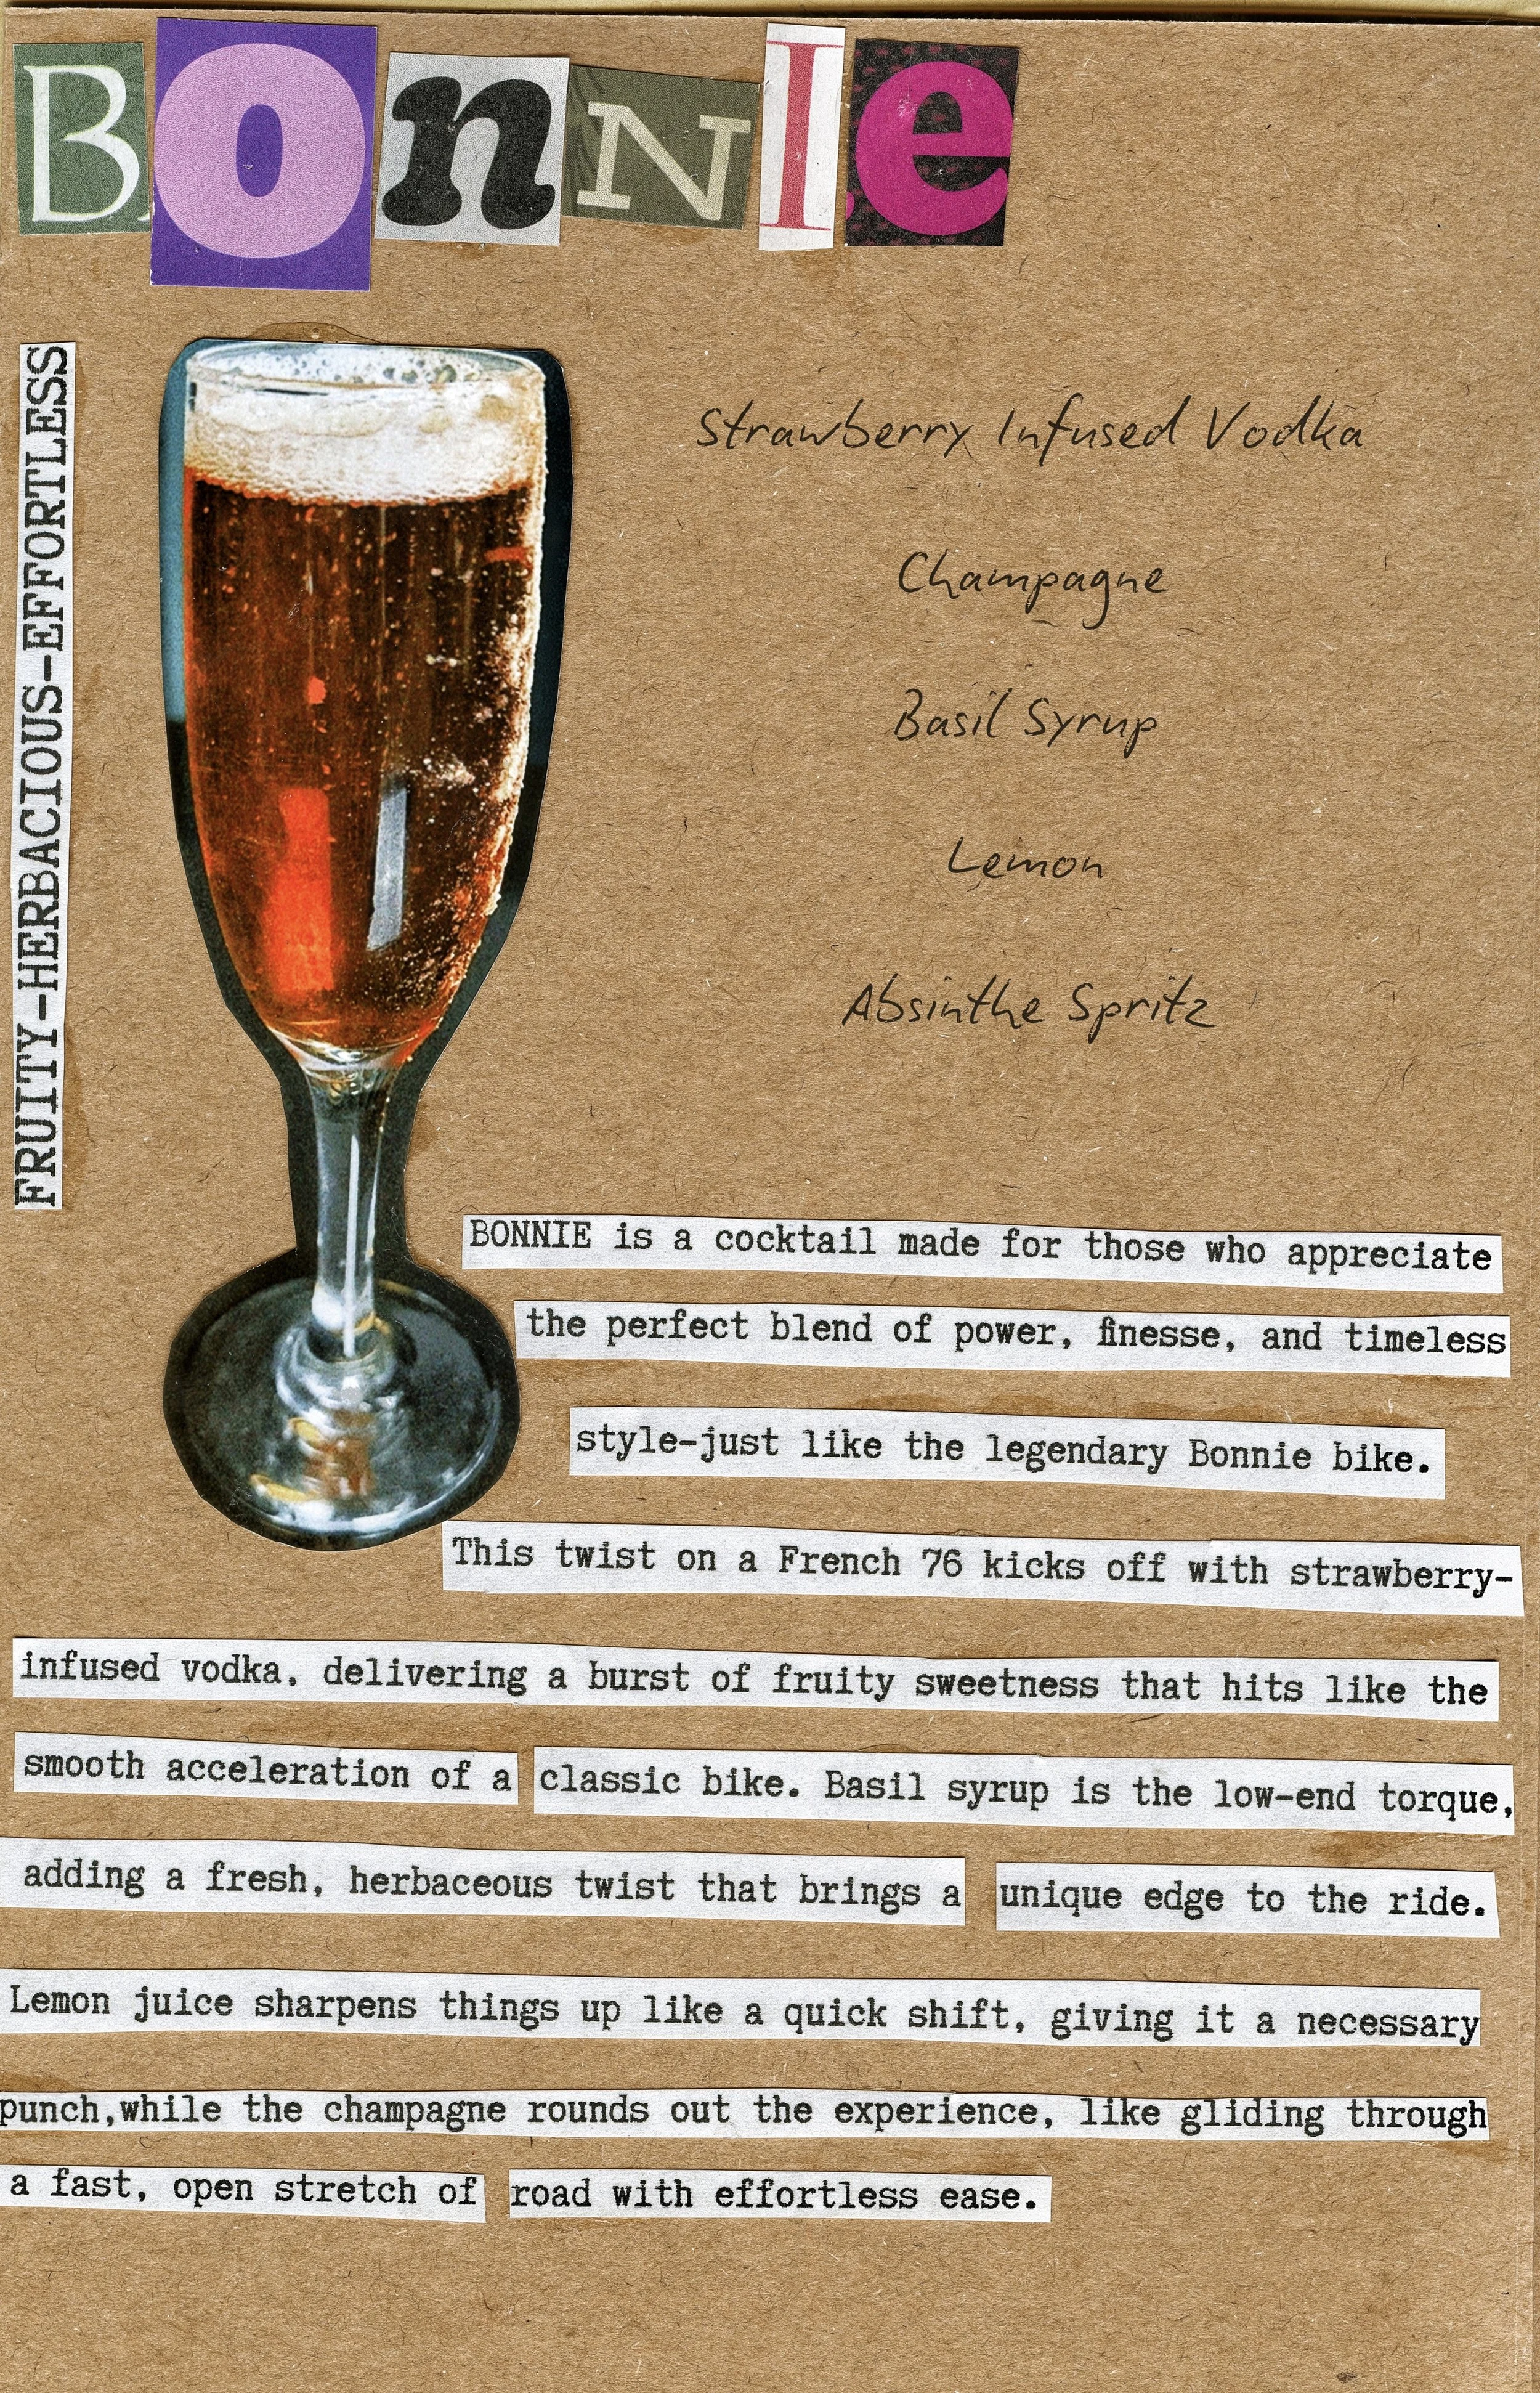 BonNIe
FRUITY-HERBACIOUS-EFFORTLESS
Strawberry Infused Vodka
Champagne
Basil Syrup
Lemon
Absinthe Spritz
BONNIE is a cocktail made for those who appreciate
the perfect blend of power, finesse, and timeless
style-just like the legendary Bonnie bike.
This twist on a French 76 kicks off with strawberry-
infused vodka, delivering a burst of fruity sweetness that hits like the
smooth acceleration of a classic bike. Basil syrup is the low-end torque,
adding a fresh, herbaceous twist that brings a unique edge to the ride.
Lemon juice sharpens things up like a quick shift, giving it a necessary
punch,while the champagne rounds out the experience, like gliding through
a fast, open stretch of road with effortless ease.